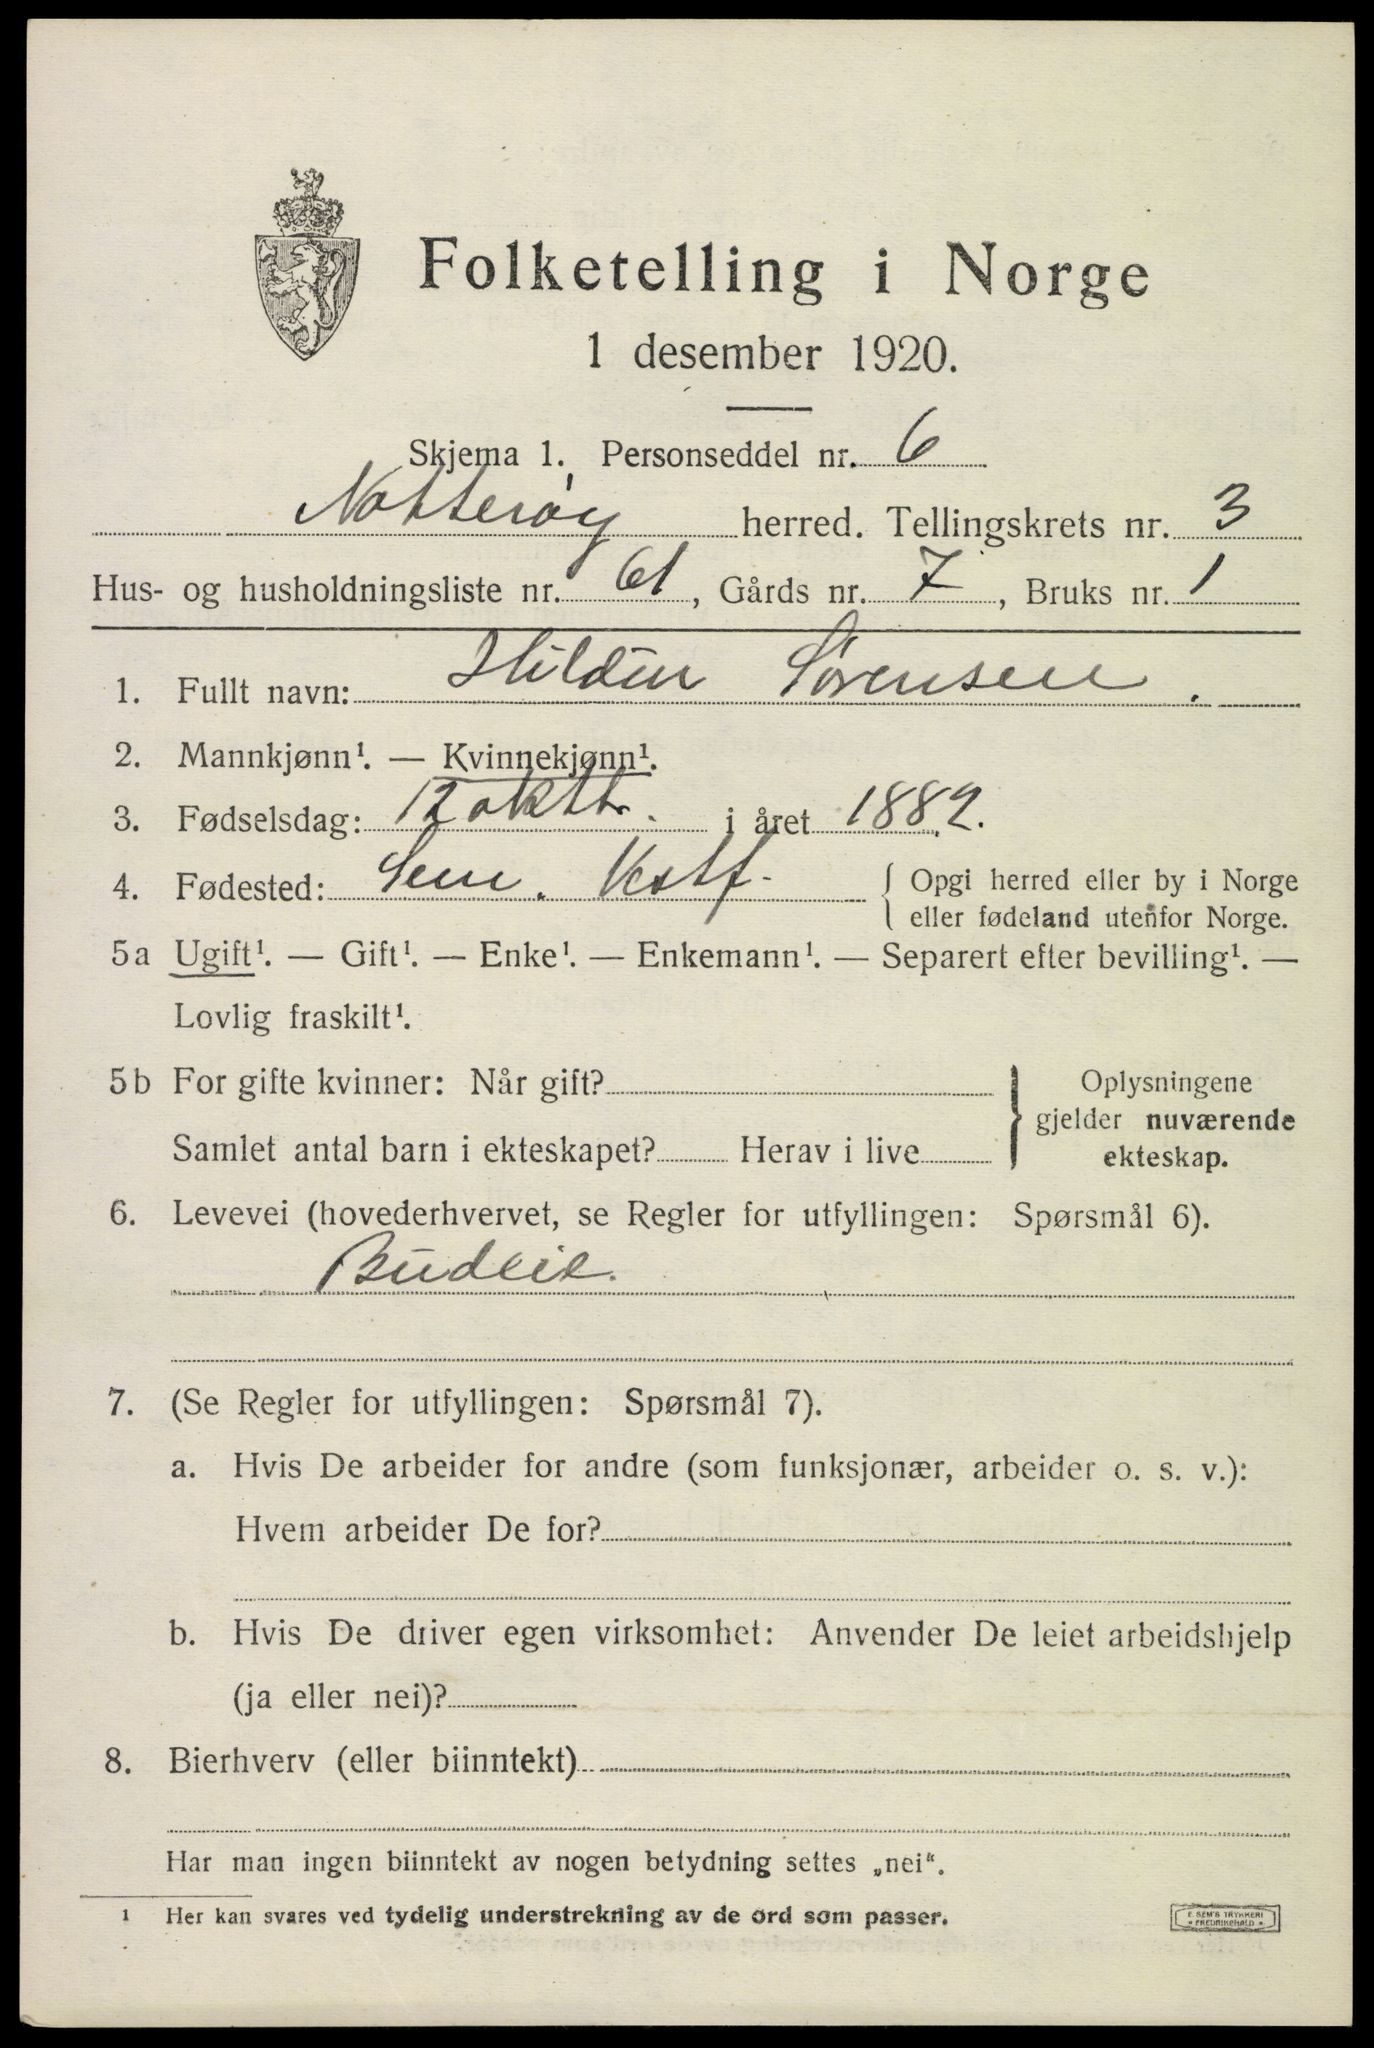 Folketelling i Norge
1 desember 1920.
Skjema 1. Personseddel nr. 6
Nøtterøy herred. Tellingskrets nr. 3
Hus- og husholdningsliste nr. 61, Gårds nr. 7, Bruks nr. 1
1. Fullt navn: Hildur Sørensen.
2. Mannkjønn¹. — Kvinnekjønn¹.
3. Fødselsdag: 12 oktbr. i året 1882.
4. Fødested: Sem. Vestf. { Opgi herred eller by i Norge
eller fødeland utenfor Norge.
5a Ugift¹. — Gift¹. — Enke¹. — Enkemann¹. — Separert efter bevilling¹. —
Lovlig fraskilt¹.
5b For gifte kvinner: Når gift? } Oplysningene
gjelder nuværende
Samlet antal barn i ekteskapet? Herav i live ekteskap.
6. Levevei (hovederhvervet, se Regler for utfyllingen: Spørsmål 6).
Budeie.
7. (Se Regler for utfyllingen: Spørsmål 7).
a. Hvis De arbeider for andre (som funksjonær, arbeider o. s. v.):
Hvem arbeider De for?
b. Hvis De driver egen virksomhet: Anvender De leiet arbeidshjelp
(ja eller nei)?
8. Bierhverv (eller biinntekt)
Har man ingen biinntekt av nogen betydning settes „nei".
1 Her kan svares ved tydelig understrekning av de ord som passer.
E. SEM'S TRYKKERI
FREDRIKSHALD